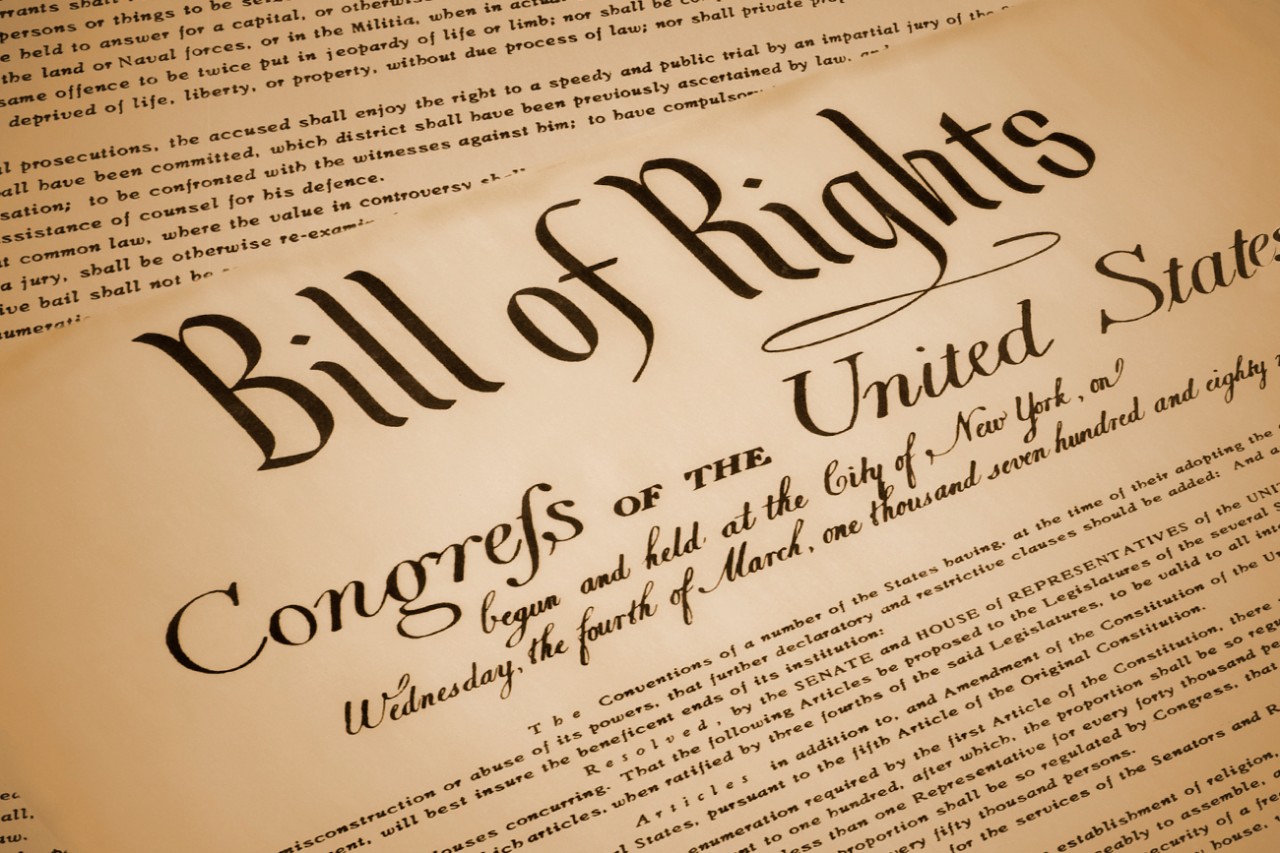 rrants shall
persons or things to be
e held to answer for a capital, or otherwise
the land or Naval forces, or in the Militia, when in actual
same offence to be twice put in jeopardy of life or limb; nor shall be
deprived of life, liberty, or property, without due process of law; nor shall private
l prosecutions, the accused shall enjoy the right to a speedy and public trial by an impartial jury of the
all have been committed, which district shall have been previously ascertained by law,
sation; to be confronted with the witnesses against him; to have compulsory
ssistance of counsel for his defence.
t common law, where the value in controversy
a jury, shall be otherwise re-exami
ive bail shall not be
Bill of Rights
Congreſs OF THE United States
begun and held at the City of New York, on
Wednesday, the fourth of March, one thousand seven hundred and eighty
The Conventions of a number of the States having, at the time of their adopting the
misconstruction or abuse of its powers, that further declaratory and restrictive clauses should be added: And
ent, will best insure the beneficent ends of its institution:
Resolved, by the SENATE and HOUSE of REPRESENTATIVES of the UNI
ouses concurring. That the following Articles be proposed to the Legislatures of the several
ch articles, when ratified by three fourths of the said Legislatures, to be valid to all
Articles in addition to, and Amendment of the Constitution of the
l States, pursuant to the fifth Article of the Original Constitution.
enumeration required by the first Article of the Constitution, there
nt to one hundred, after which, the proportion shall be so regu
less than one Representative for every forty thousand
proportion shall be so regulated by Congress, that
very fifty thousand persons.
for the services of the Senators and
establishment of religion,
eably to assemble,
ecurity of a free
house,
all,
aw.